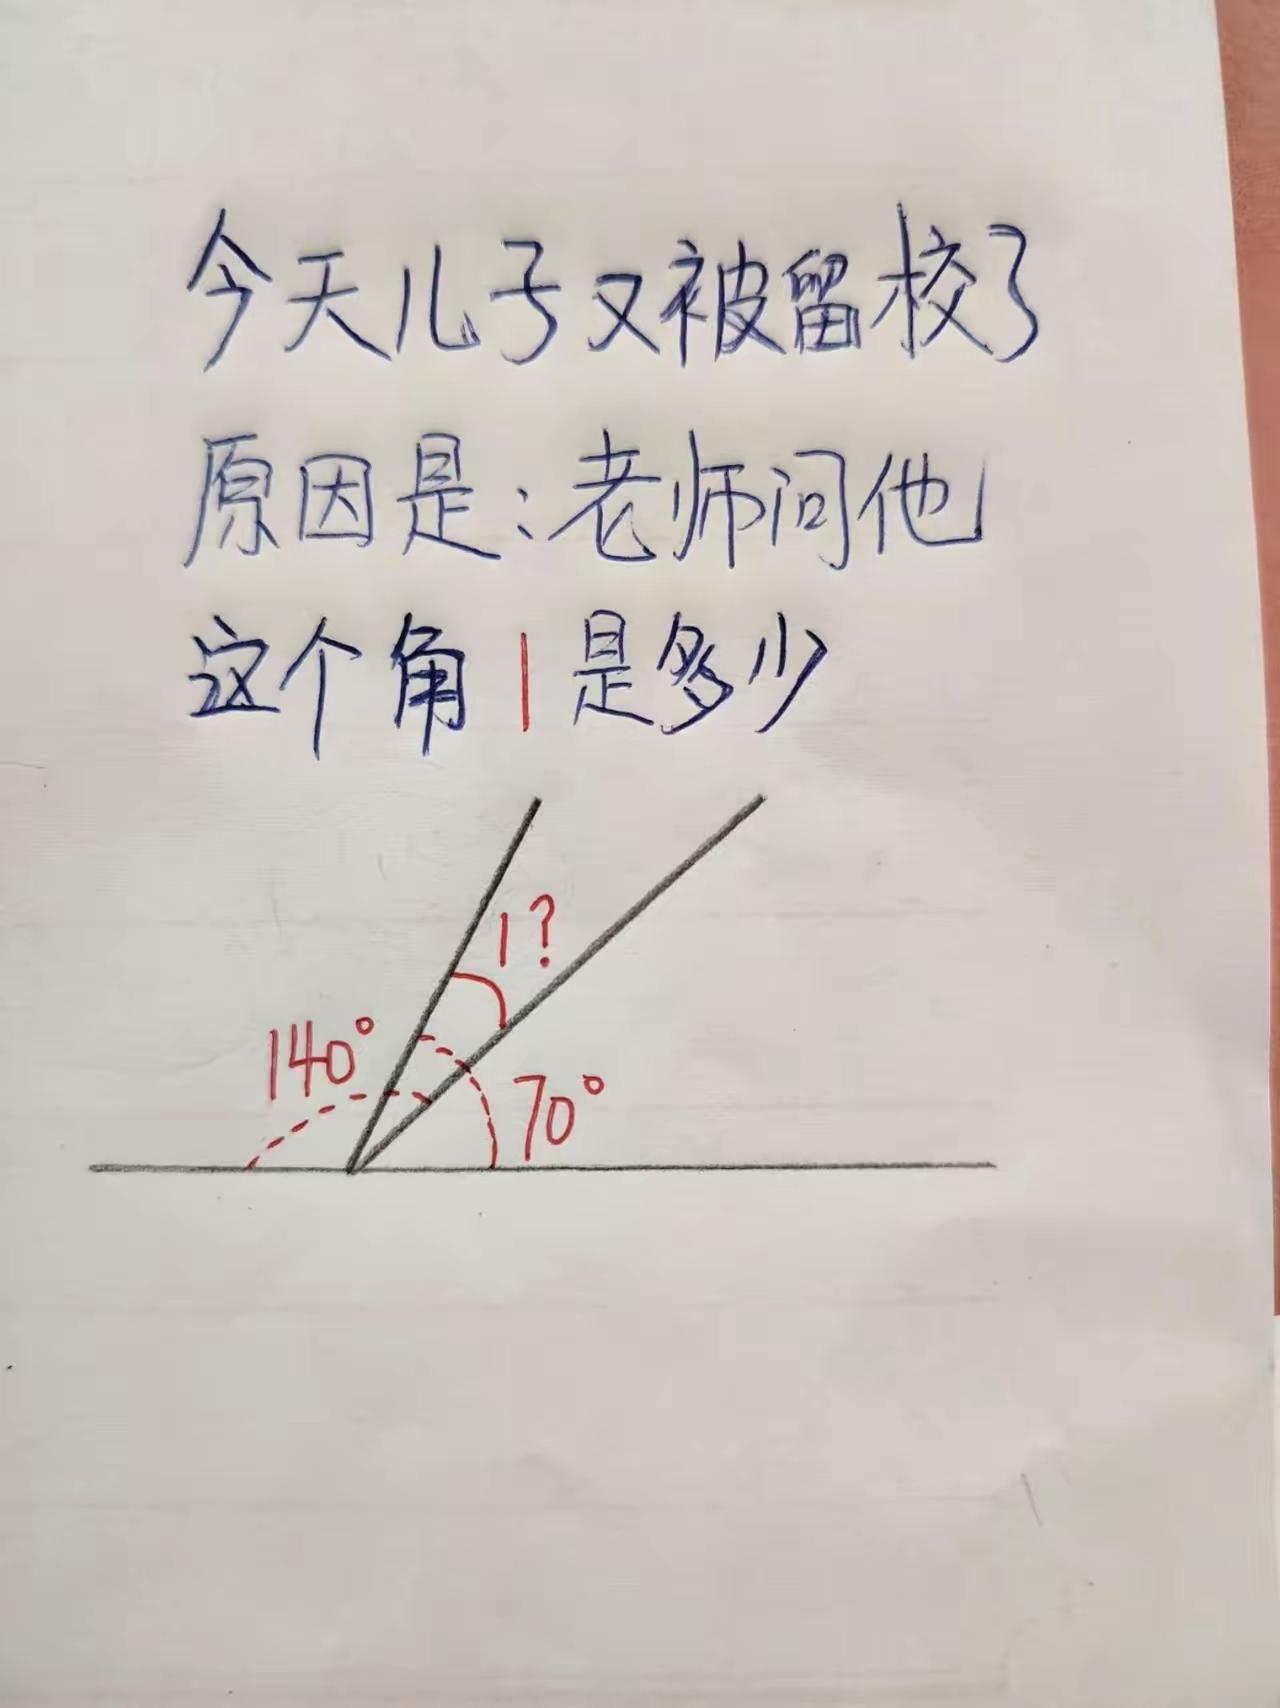 今天儿子又被留校了
原因是:老师问他
这个角1是多少
1?
140°
70°